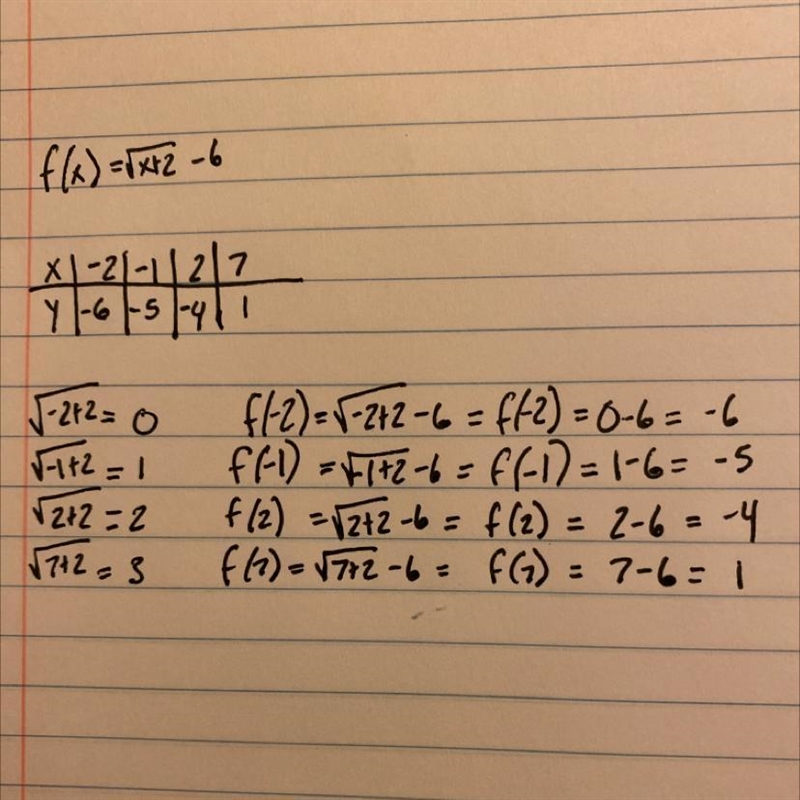 f(x)=√x+2 -6
X | -2 | -1 | 2 | 7
Y | -6 | -5 | -4 | 1
√-2+2 = 0 f(-2)=√-2+2 -6 = f(-2) = 0-6 = -6
√-1+2 = 1 f(-1) =√-1+2 -6 = f(-1) = 1-6 = -5
√2+2 = 2 f(2) =√2+2 -6 = f(2) = 2-6 = -4
√7+2 = 3 f(7) =√7+2 -6 = f(7) = 7-6 = 1